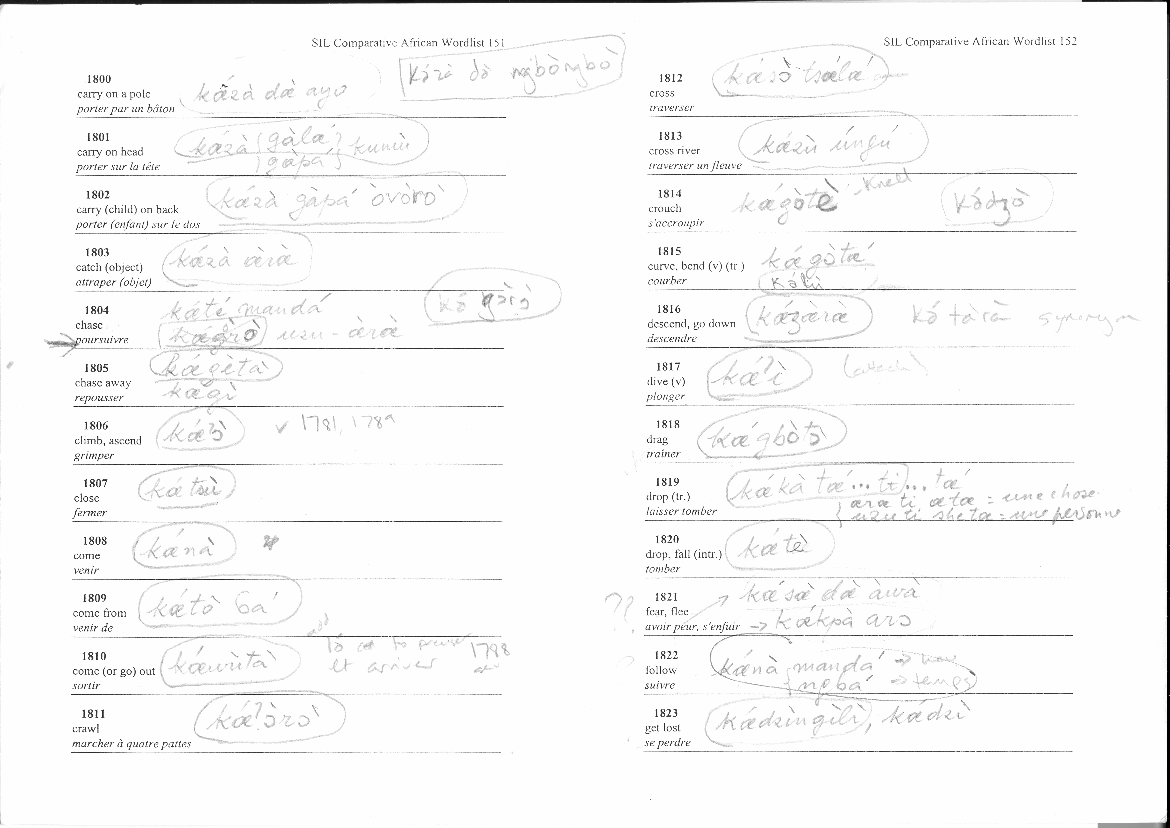 SIL Comparative African Wordlist 151
1800
carry on a pole
porter par un bâton
kǽzà dæ̀ ayo
kózò dò ngbòngbò
1801
carry on head
porter sur la tête
kǽzà {gàlǽ} kumù
{gàpá}
1802
carry (child) on back
porter (enfant) sur le dos
kǽzà gàpá òvòrò
1803
catch (object)
attraper (objet)
kǽzà æ̀ræ̀
1804
chase
poursuivre
kǽté mandá
kǽgòrò uzu - æ̀ræ̀
1805
chase away
repousser
kǽgètà
kǽgì
1806
climb, ascend
grimper
✓ 1781, 1789
1807
close
fermer
kǽtsù
1808
come
venir
kǽnà
1809
come from
venir de
kǽtò ɓá
1810
come (or go) out
sortir
kǽwùtà
et arriver
1798
1811
crawl
marcher à quatre pattes
kǽʔɔ̀rɔ̀
SIL Comparative African Wordlist 152
1812
cross
traverser
kǽsɔ̀ tsǽlǽ
1813
cross river
traverser un fleuve
kǽzù úngú
1814
crouch
s'accroupir
kǽgòtè
knell
kódzò
1815
curve, bend (v) (tr.)
courber
kǽgɔ̀tǽ
kálù
1816
descend, go down
descendre
kǽzæ̀ræ̀
kó tàrà synonym
1817
dive (v)
plonger
kǽʔì
1818
drag
traîner
kǽgbòtɔ̀
1819
drop (tr.)
laisser tomber
kǽkà tǽ ... ti ... tǽ
{ æræ ti ætæ = une chose
{ uzu ti she tæ = une personne
1820
drop, fall (intr.)
tomber
kǽtè
1821
fear, flee
avoir peur, s'enfuir
?? → kǽsæ̀ dæ̀ àwà
→ kǽkpà arɔ
1822
follow
suivre
kǽnà mandá
{ngbá → temps
1823
get lost
se perdre
kǽdzìngìlì, kǽdzì